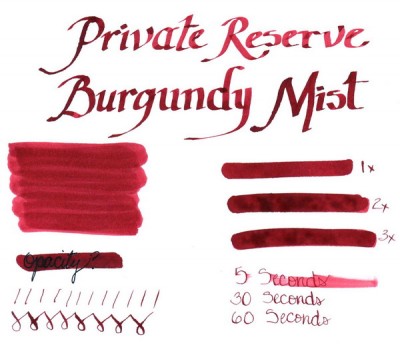 Private Reserve
Burgundy Mist
1x
2x
3x
Opacity?
5 Seconds
30 Seconds
60 Seconds